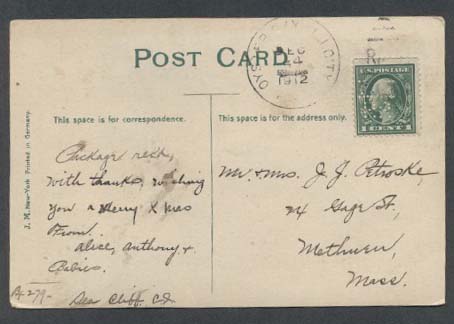 POST CARD
OYSTER BAY
DEC
24
1912
U.S. POSTAGE
1 CENT 1
This space is for correspondence.
This space is for the address only.
J. M. New-York Printed in Germany.
Package recd,
with thanks, wishing
you a Merry X mas
From.
Alice, Anthony. +
Babies.
Sea Cliff.
A-279-
Mr. & Mrs. J. J. Petroske,
24 Gage St,
Methuen,
Mass.